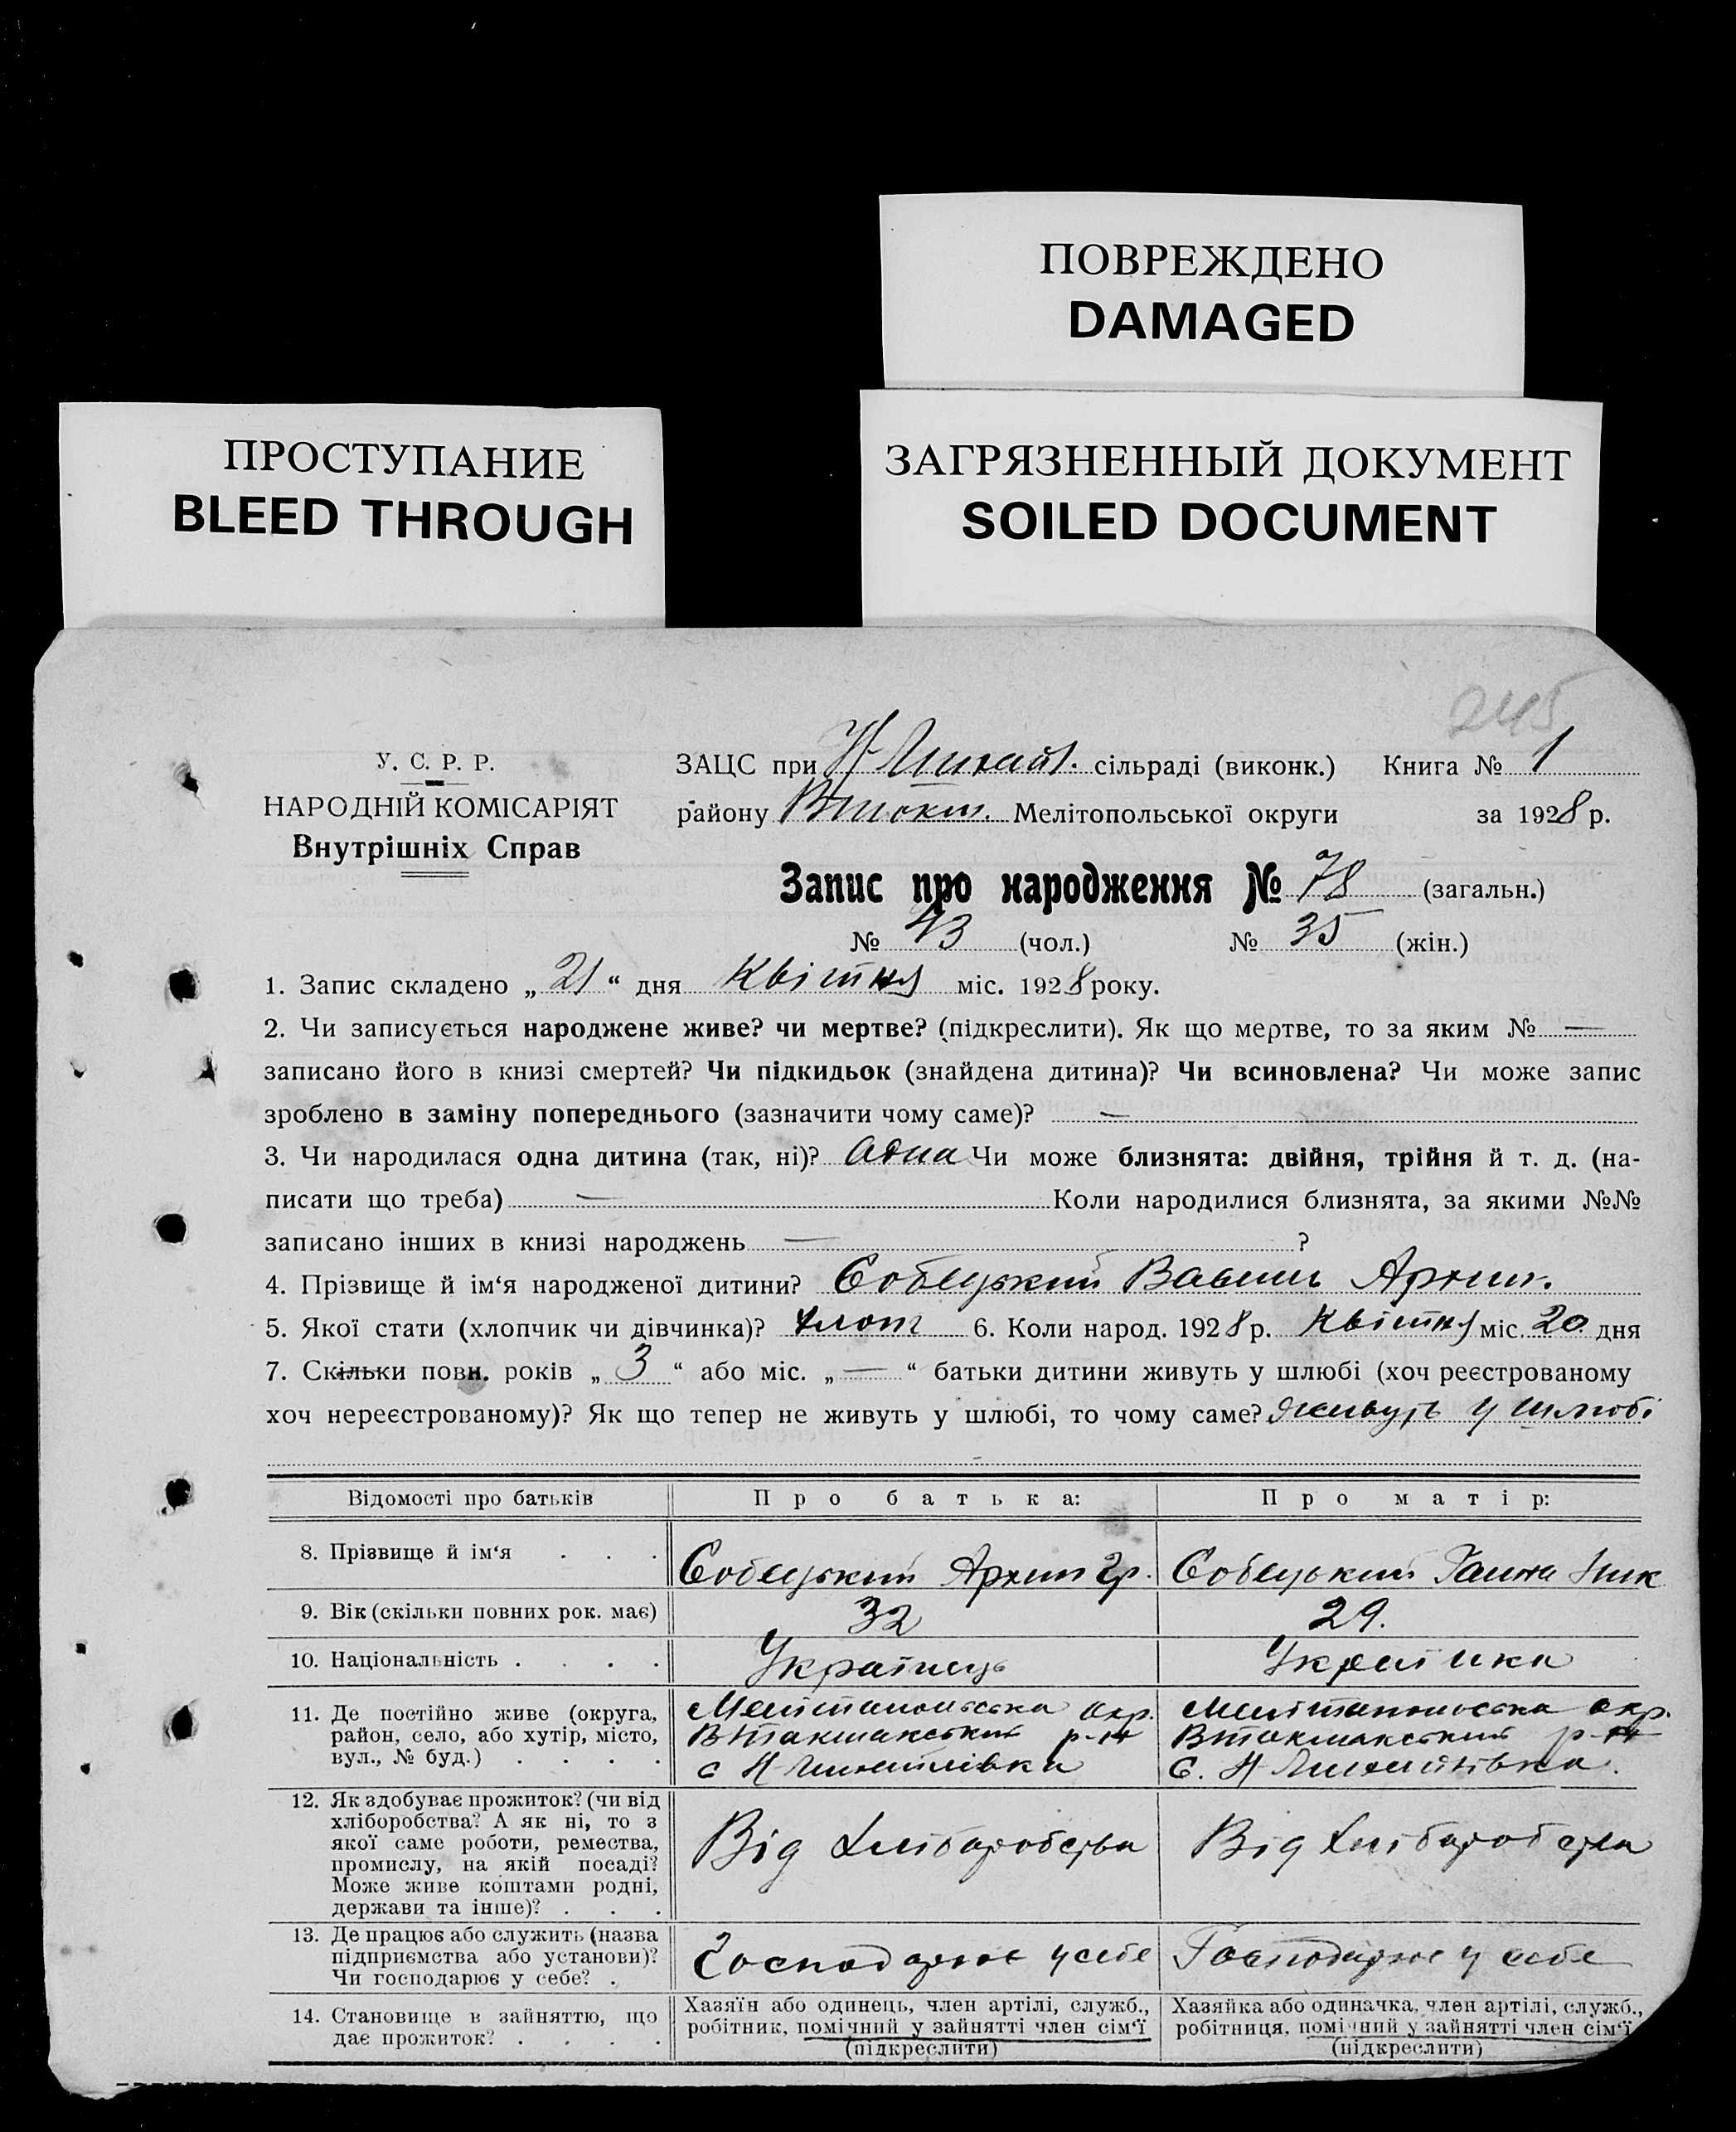 ПОВРЕЖДЕНО
DAMAGED
ПРОСТУПАНИЕ
BLEED THROUGH
ЗАГРЯЗНЕННЫЙ ДОКУМЕНТ
SOILED DOCUMENT
245
У. С. Р. Р.
НАРОДНІЙ КОМІСАРІЯТ
Внутрішніх Справ
ЗАЦС при Н Михайл. сільраді (виконк.) Книга № 1
району ВТокм. Мелітопольської округи за 1928 р.
Запис про народження № 78 (загальн.)
№ 43 (чол.) № 35 (жін.)
1. Запис складено „ 21 “ дня Квітня міс. 1928 року.
2. Чи записується народжене живе? чи мертве? (підкреслити). Як що мертве, то за яким № —
записано його в книзі смертей? Чи підкидьок (знайдена дитина)? Чи всиновлена? Чи може запис
зроблено в заміну попереднього (зазначити чому саме)? —
3. Чи народилася одна дитина (так, ні)? Одна Чи може близнята: двійня, трійня й т. д. (на-
писати що треба) — Коли народилися близнята, за якими №№
записано інших в книзі народжень — ?
4. Прізвище й ім‘я народженої дитини? Собецький Василь Архип.
5. Якої стати (хлопчик чи дівчинка)? хлопч 6. Коли народ. 1928 р. Квітня міс. 20 дня
7. Скільки повн. років „ 3 “ або міс. „ — “ батьки дитини живуть у шлюбі (хоч реєстрованому
хоч нереєстрованому)? Як що тепер не живуть у шлюбі, то чому саме? Живуть у шлюбі
Відомості про батьків Про батька: Про матір:
8. Прізвище й ім‘я . . . Собецький Архип Гр. Собецький Ганна Ник
9. Вік (скільки повних рок. має) 32 29.
10. Національність . . . . Українець Українка
11. Де постійно живе (округа, Мелітопольська окр. Мелітопольська окр.
район, село, або хутір, місто, ВТокмакський р-н ВТокмакський р-н
вул., № буд.) . . . . с Н Михайлівка С. Н Михайлівка.
12. Як здобуває прожиток? (чи від
хліборобства? А як ні, то з
якої саме роботи, ремества, Від Хліборобства Від Хліборобства
промислу, на якій посаді?
Може живе коштами родні,
держави та інше)? . . .
13. Де працює або служить (назва
підприємства або установи)? Господарює у себе Господарює у себе
Чи господарює у себе? .
14. Становище в зайняттю, що Хазяїн або одинець, член артілі, служб., Хазяйка або одиначка, член артілі, служб.,
дає прожиток? . . . . робітник, помічний у зайнятті член сім‘ї робітниця, помічний у зайнятті член сім‘ї
(підкреслити) (підкреслити)